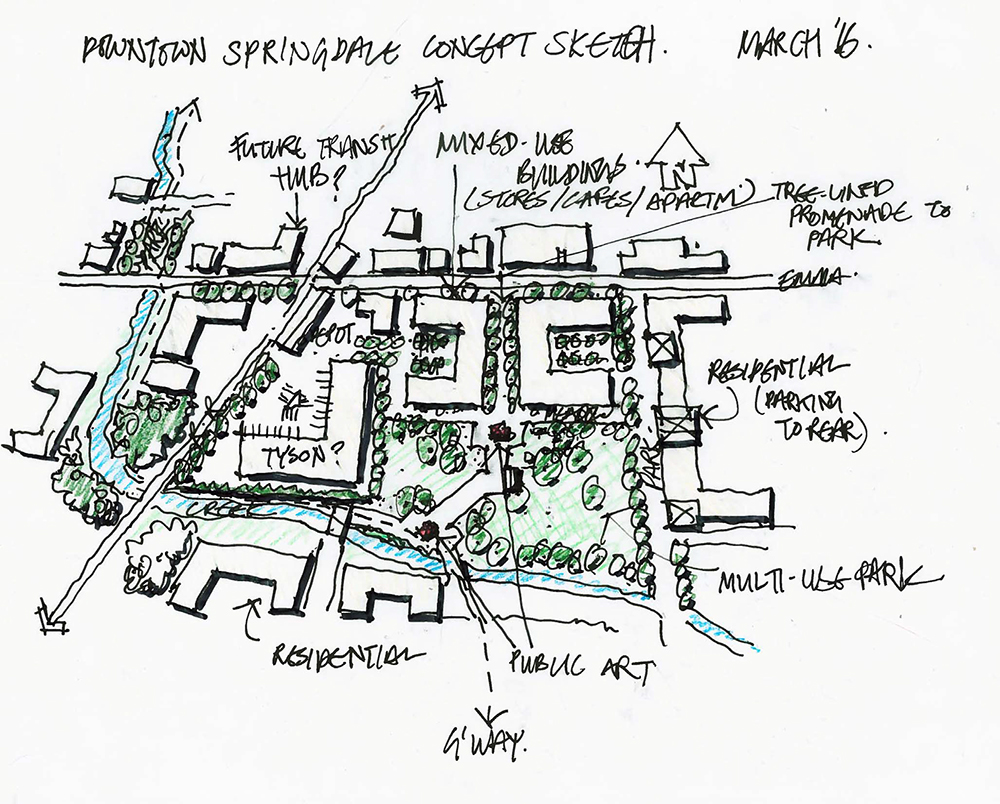 DOWNTOWN SPRINGDALE CONCEPT SKETCH. MARCH '16.
FUTURE TRANSIT
HUB?
MIXED-USE
BUILDINGS.
(STORES/CAFES/APARTM.)
N
TREE-LINED
PROMENADE TO
PARK
EMMA.
DEPOT
RESIDENTIAL
(PARKING
TO REAR).
TYSON?
PARK
CREEK
MULTI-USE PARK
RESIDENTIAL
PUBLIC ART
G'WAY.